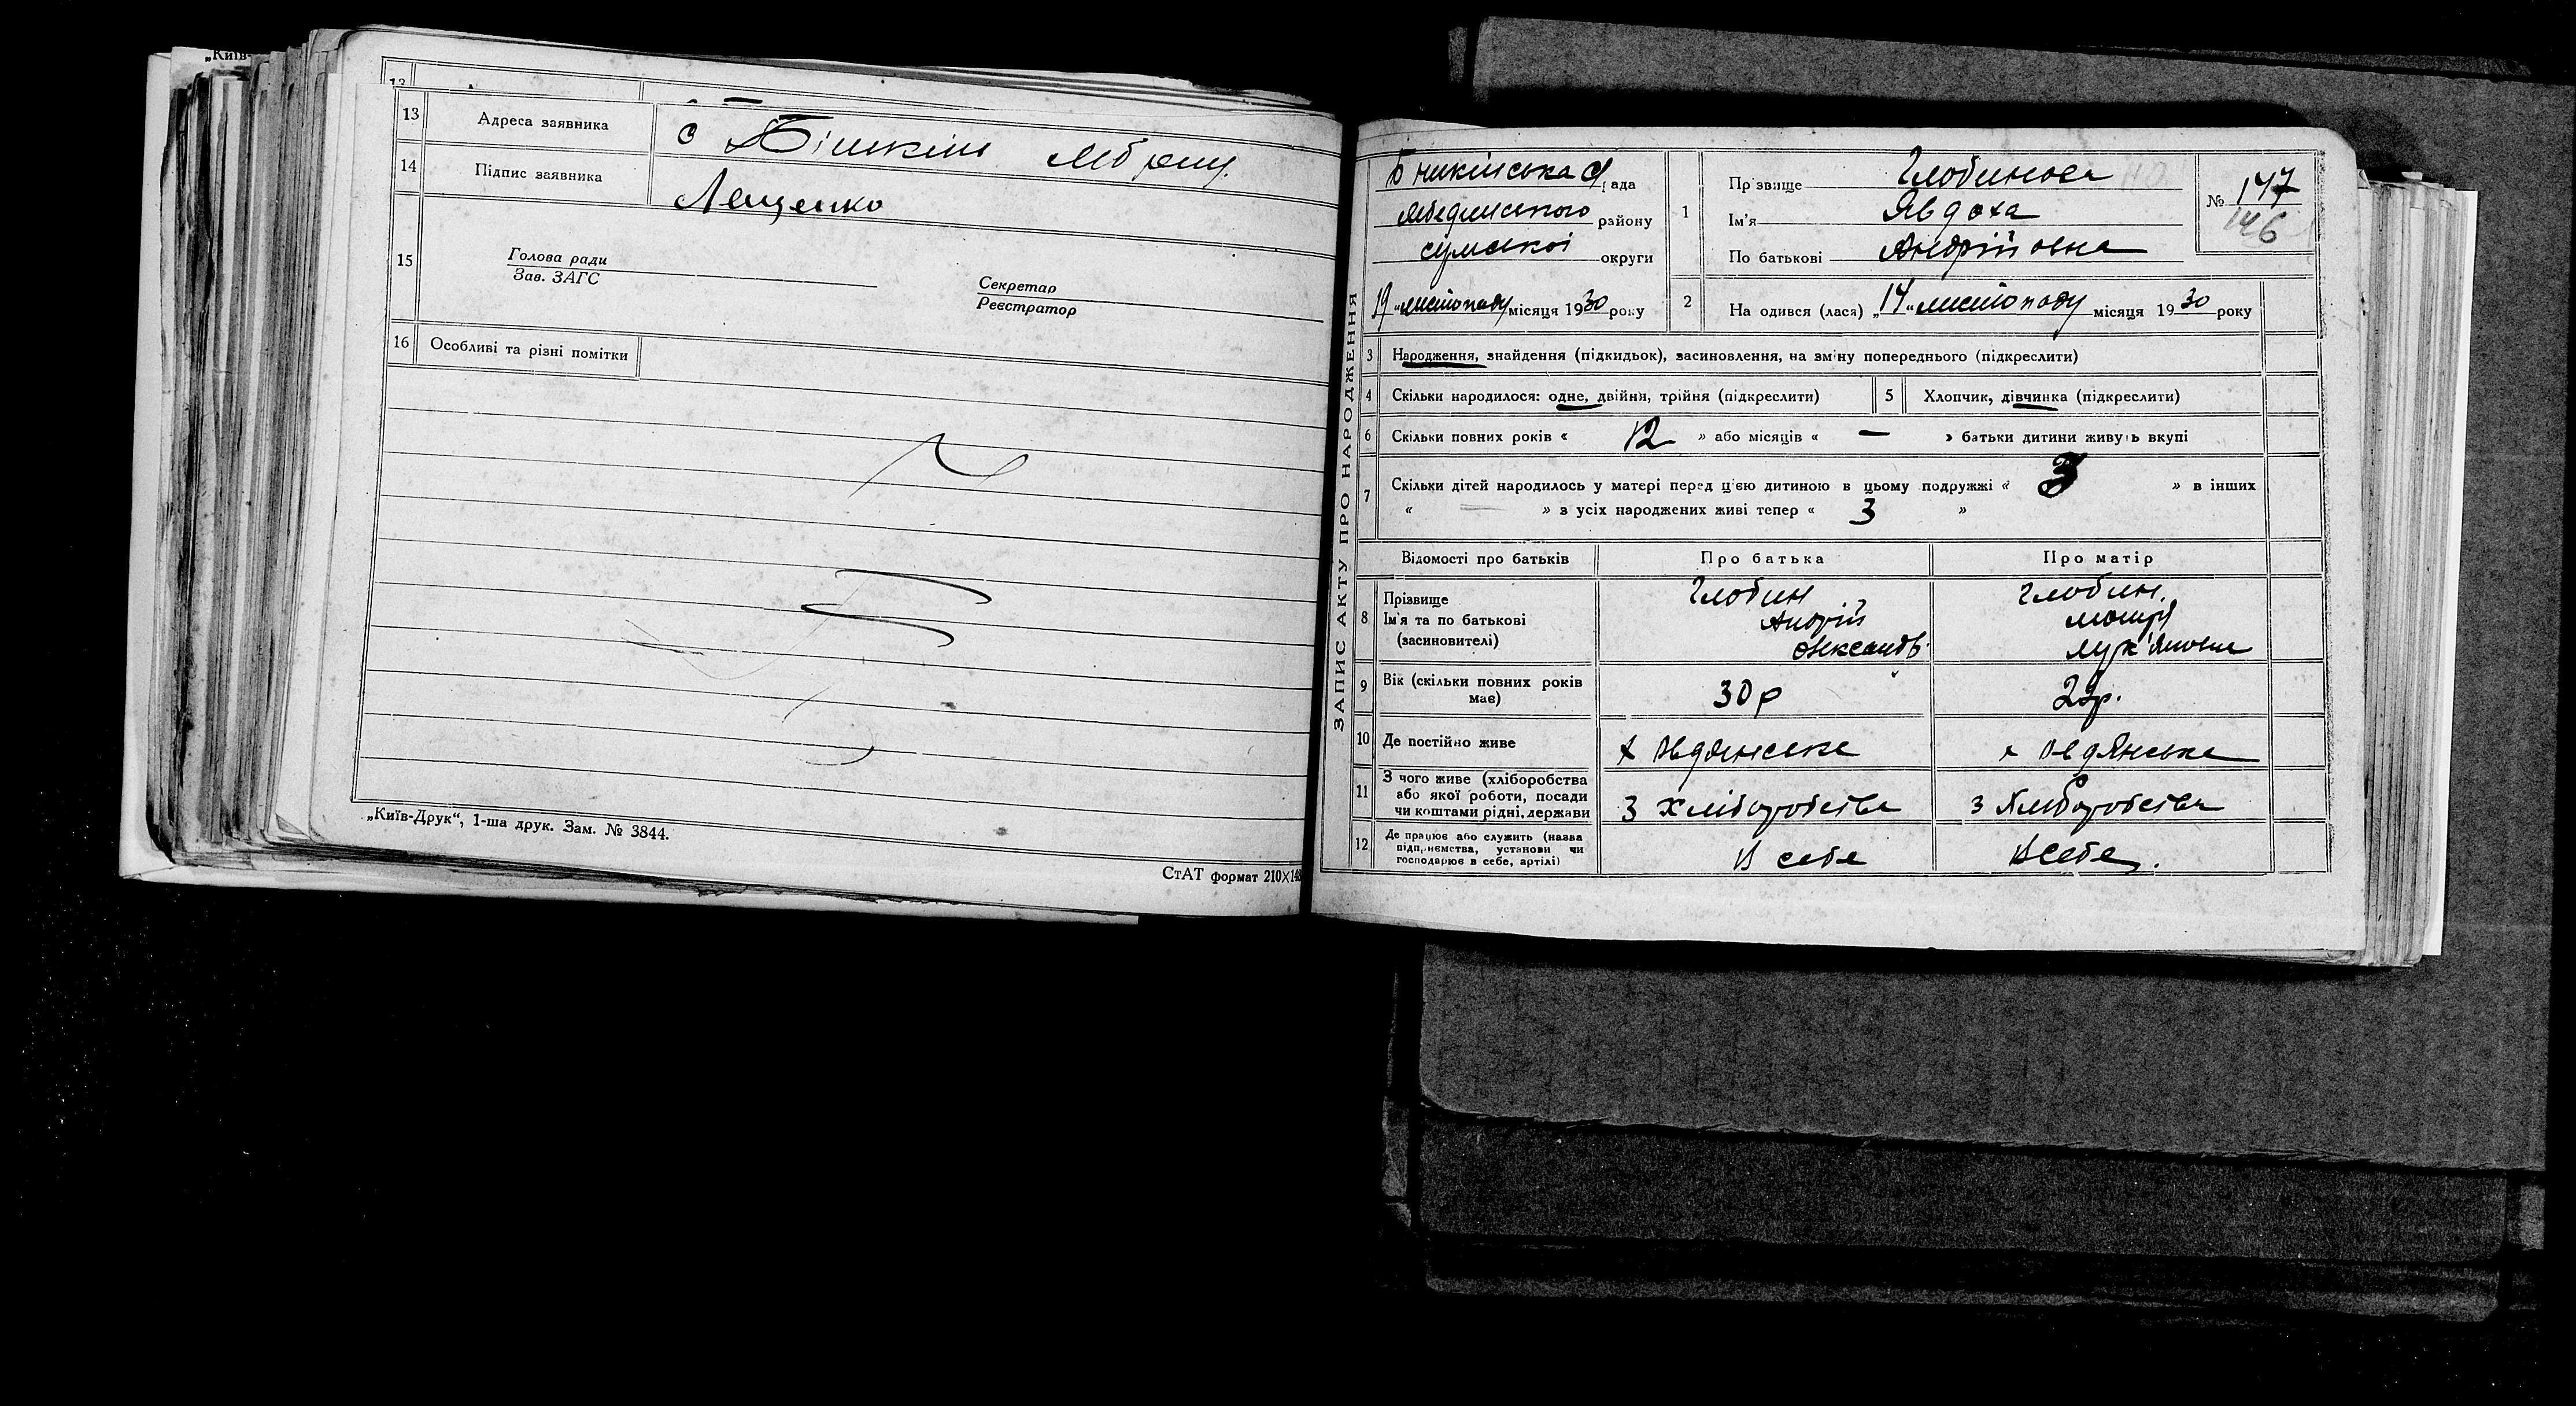 „Київ-
13
13 Адреса заявника с Бішкінь Лебрайну.
14 Підпис заявника Лещенко
15 Голова ради
Зав. ЗАГС
Секретар
Реєстратор
16 Особливі та різні помітки
„Київ-Друк“, 1-ша друк. Зам. № 3844.
СтАТ формат 210×148
ЗАПИС АКТУ ПРО НАРОДЖЕННЯ
Бишкінська С/рада
Лебединського району
Сумської округи
19 „листопаду місяця 1930 року
1 Прізвище Глобинова
Ім’я Явдоха
По батькові Андріївна
№ 147
146
2 На одився (лася) „14“ листопаду місяця 1930 року
3 Народження, знайдення (підкидьок), засиновлення, на зміну попереднього (підкреслити)
4 Скільки народилося: одне, двійня, трійня (підкреслити) 5 Хлопчик, дівчинка (підкреслити)
6 Скільки повних років « 12 » або місяців « — » батьки дитини живуть вкупі
7 Скільки дітей народилось у матері перед цією дитиною в цьому подружжі « 3 » в інших
« — » з усіх народжених живі тепер « 3 »
Відомості про батьків Про батька Про матір
8 Прізвище Глобин Глобин.
Ім’я та по батькові Андрій
(засновителі) Олександ. Лук’янов
9 Вік (скільки повних років має) 30 р
10 Де постійно живе х
11 З чого живе (хліборобства або якої роботи, посади чи коштами рідні, держави З хліборобства З хліборобства
12 Де працює або служить (назва підприємства, установи чи господарює в себе, артілі) В себе В себе.